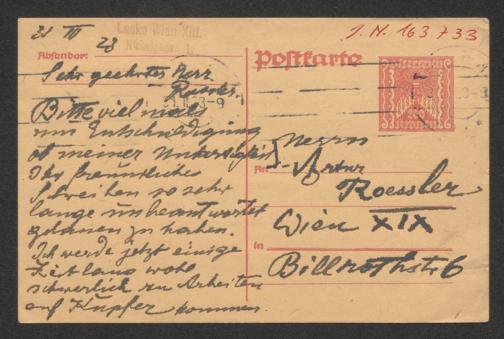 31 III 23
I.N. 163.733
Luske Wien XIII.
Absender:
Postkarte
Sehr geehrter Herr
Roessler.
Bitte viel mals
um Entschuldigung
ob meiner Unhöflichkeit
Ihr freundliches
Schreiben so sehr
lange unbeantwortet
gelassen zu haben.
Ich werde jetzt einige
Zeit lang wohl
schwerlich zu Arbeiten
auf Kupfer kommen.
Österreich
Kronen
Herrn
An Artur
Roessler
Wien XIX
in Billrothstr 6